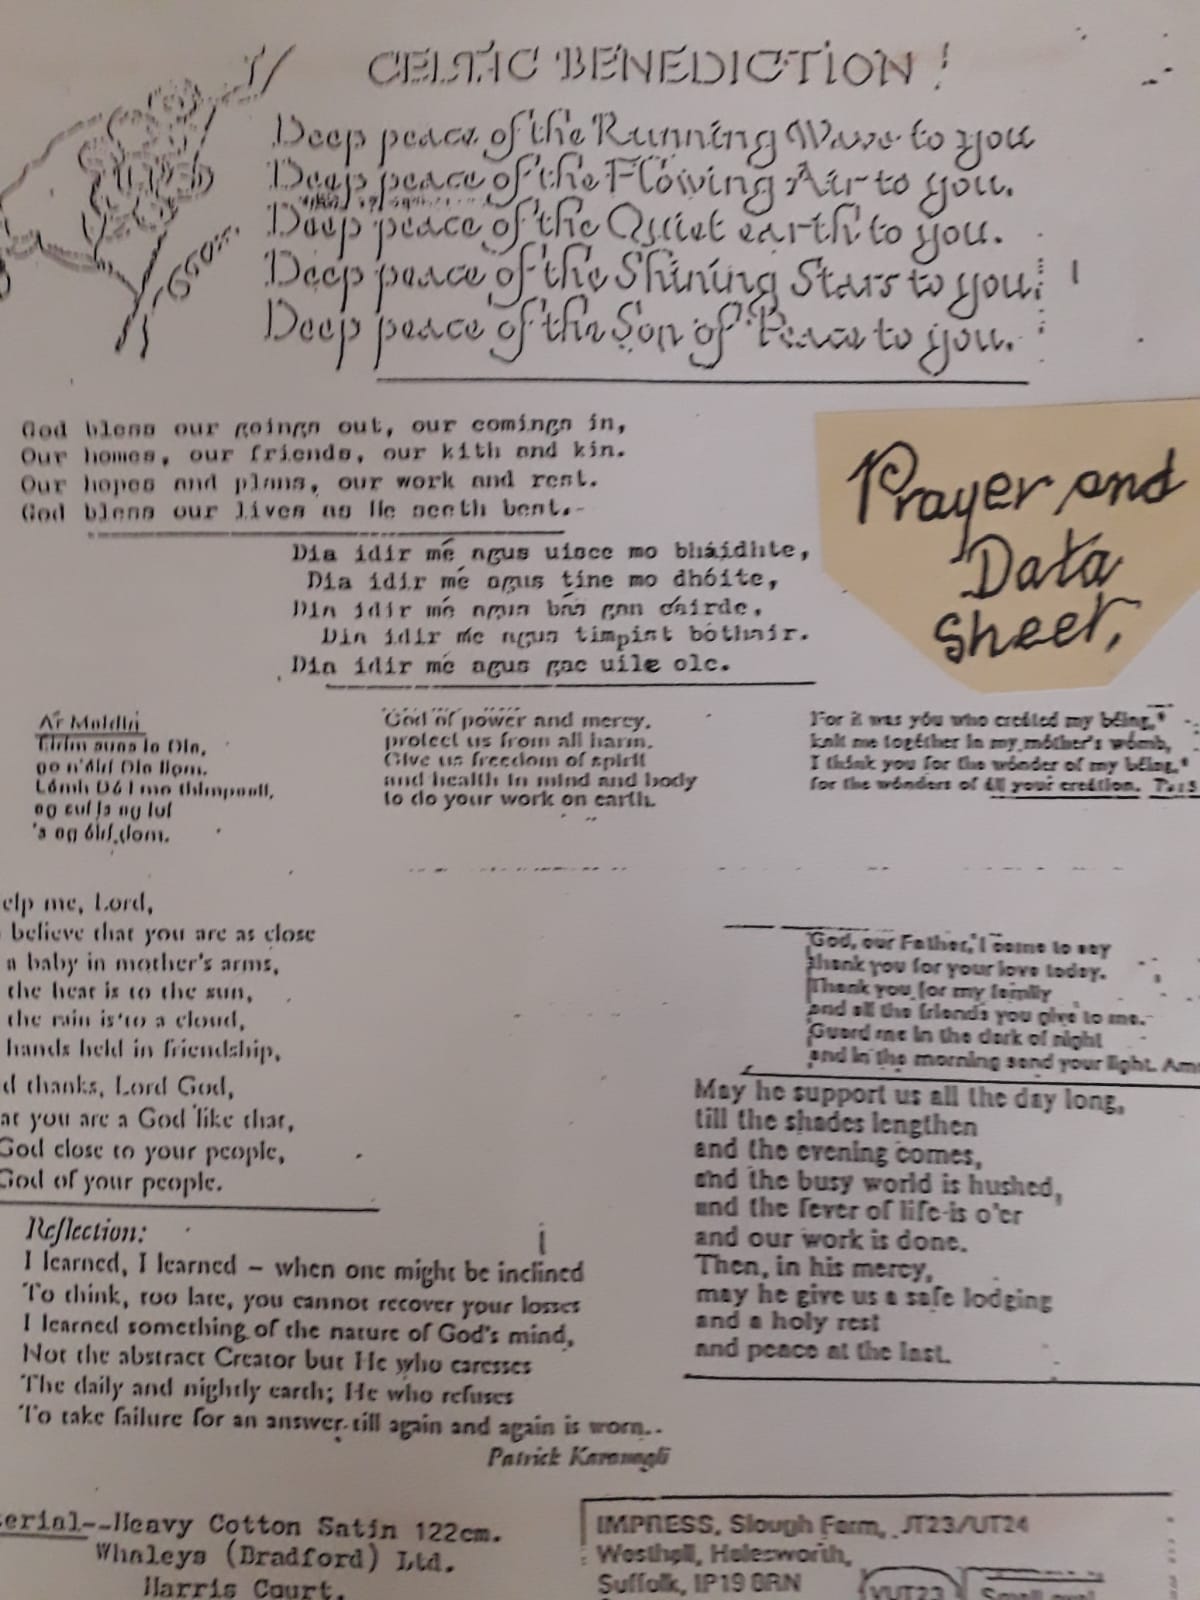 CELTIC BENEDICTION!
Deep peace of the Running Wave to you
Deep peace of the Flowing Air to you.
Deep peace of the Quiet earth to you.
Deep peace of the Shining Stars to you.
Deep peace of the Son of Peace to you.
God bless our goings out, our comings in,
Our homes, our friends, our kith and kin.
Our hopes and plans, our work and rest.
God bless our lives as He seeth best.-
Prayer and
Data
Sheet,
Dia idir mé agus uisce mo bháidhte,
Dia idir mé agus tine mo dhóite,
Dia idir mé agus bás gan cáirde,
Dia idir mé agus timpist bóthair.
Dia idir mé agus gac uile olc.
Ar Maidin
Éirim suas le Dia,
go n'éirí Dia liom.
Lámh Dé i mo thimpeall,
ag suí is ag luí
's ag éirí dom.
God of power and mercy,
protect us from all harm.
Give us freedom of spirit
and health in mind and body
to do your work on earth.
For it was you who created my béing,*
knit me togéther in my móther's womb,
I thánk you for the wónder of my béing,*
for the wónders of áll your creátion.
elp me, Lord,
believe that you are as close
a baby in mother's arms,
the heat is to the sun,
the rain is to a cloud,
hands held in friendship,
d thanks, Lord God,
at you are a God like that,
God close to your people,
God of your people.
God, our Father, I come to say
thank you for your love today.
Thank you for my family
and all the friends you give to me.
Guard me in the dark of night
and in the morning send your light. Am
May he support us all the day long,
till the shades lengthen
and the evening comes,
and the busy world is hushed,
and the fever of life is o'er
and our work is done.
Then, in his mercy,
may he give us a safe lodging
and a holy rest
and peace at the last.
Reflection:
I learned, I learned – when one might be inclined
To think, too late, you cannot recover your losses
I learned something of the nature of God's mind,
Not the abstract Creator but He who caresses
The daily and nightly earth; He who refuses
To take failure for an answer till again and again is worn..
Patrick Kavanagh
erial--Heavy Cotton Satin 122cm.
Whaleys (Bradford) Ltd.
Harris Court.
IMPRESS, Slough Farm, JT23/UT24
Westhall, Halesworth,
Suffolk, IP19 8RN
YUT23